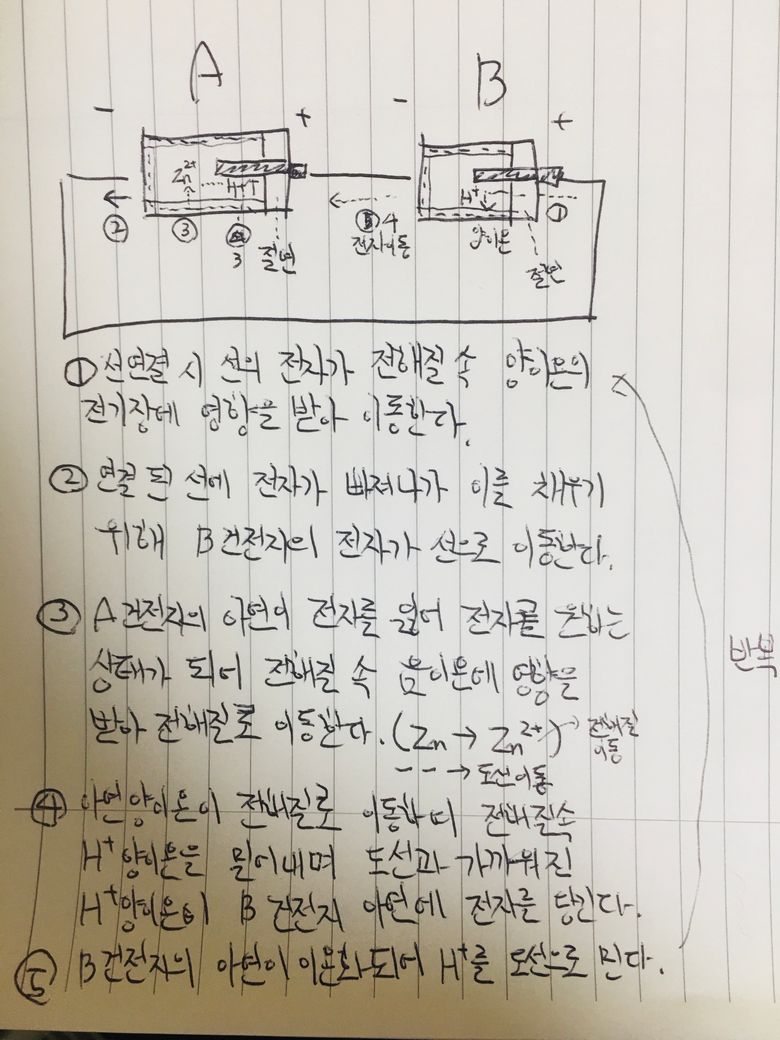 A
B
- +
- +
Zn²⁺
H⁺
H⁺
②
③
3
절연
4
전자이동
양이온
①
절연
① 선연결 시 선의 전자가 전해질 속 양이온의
전기장에 영향을 받아 이동한다.
② 연결 된 선에 전자가 빠져나가 이를 채우기
위해 B건전지의 전자가 선으로 이동한다.
③ A건전지의 아연이 전자를 잃어 전자를 원하는
상태가 되어 전해질 속 음이온에 영향을
받아 전해질로 이동한다. (Zn → Zn²⁺) → 전해질
이동
---→ 도선이동
반복
④ 아연양이온이 전해질로 이동하며 전해질속
H⁺양이온을 밀어내며 도선과 가까워진
H⁺양이온이 B 건전지 아연에 전자를 당긴다.
⑤ B건전지의 아연이 이온화되어 H⁺를 도선으로 민다.